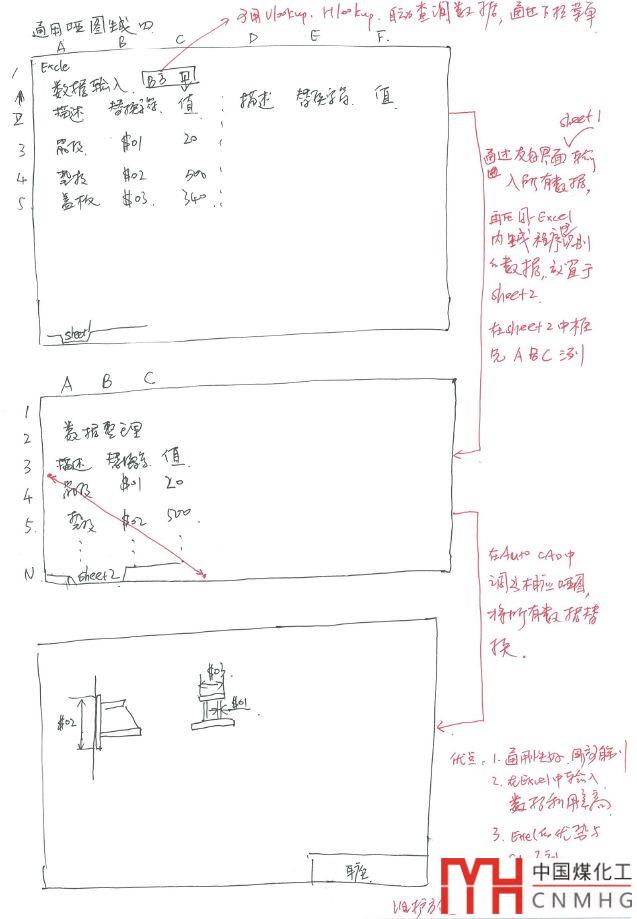 通用哑图生成
可用Vlookup、Hlookup、自动查询数据,通过下拉菜单
A B C D E F
Excle
1
数据输入
2
描述 替换字符 值 描述 替换字符 值
3 筋板 $01 20
4 垫板 $02 500
5 盖板 $03 340
sheet1
sheet1
通过友好界面输
入所有数据,
再在同一Excel
内生成程序识别
的数据,放置于
sheet2.
在sheet2中框
选ABC三列
A B C
1
2 数据整理
3 描述 替换字符 值
4 筋板 $01 20
5. 垫板 $02 500
N sheet2
在AutoCAD中
调出相应哑图,
将所有数据替
换.
$03
$01
$02
优点:1.通用性好,
2.在Excel中输入
数据利用率高
3.
中国煤化工
CNMHG